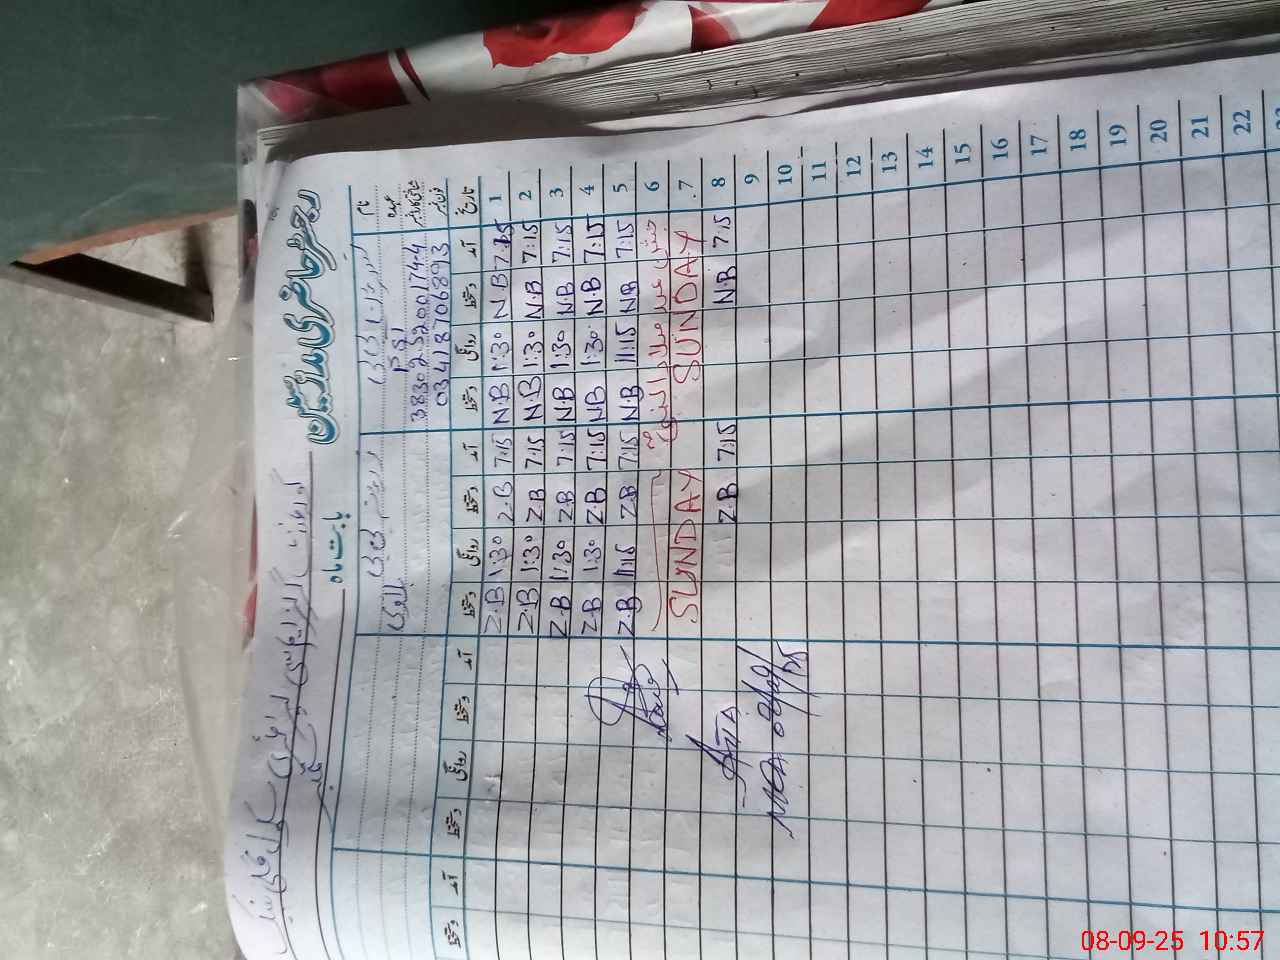 رجسٹر حاضری مدرسین
بابت ماہ
نام
عہدہ
شناختی کارڈ نمبر 38302-5200174-4
فون نمبر 03418706893
تاریخ آمد دستخط روانگی دستخط آمد دستخط روانگی دستخط آمد دستخط روانگی دستخط آمد دستخط
1 7:15 N.B 1:30 N.B 7:15 Z.B 1:30 Z.B
2 7:15 N.B 1:30 N.B 7:15 Z.B 1:30 Z.B
3 7:15 N.B 1:30 N.B 7:15 Z.B 1:30 Z.B
4 7:15 N.B 1:30 N.B 7:15 Z.B 1:30 Z.B
5 7:15 N.B 11:15 N.B 7:15 Z.B 11:15 Z.B
6 جشن عید میلاد النبیؐ
7 SUNDAY SUNDAY
8 7:15 N.B 7:15 Z.B
9
10
11
12
13
14
15
16
17
18
19
20
21
22
08-09-25 10:57